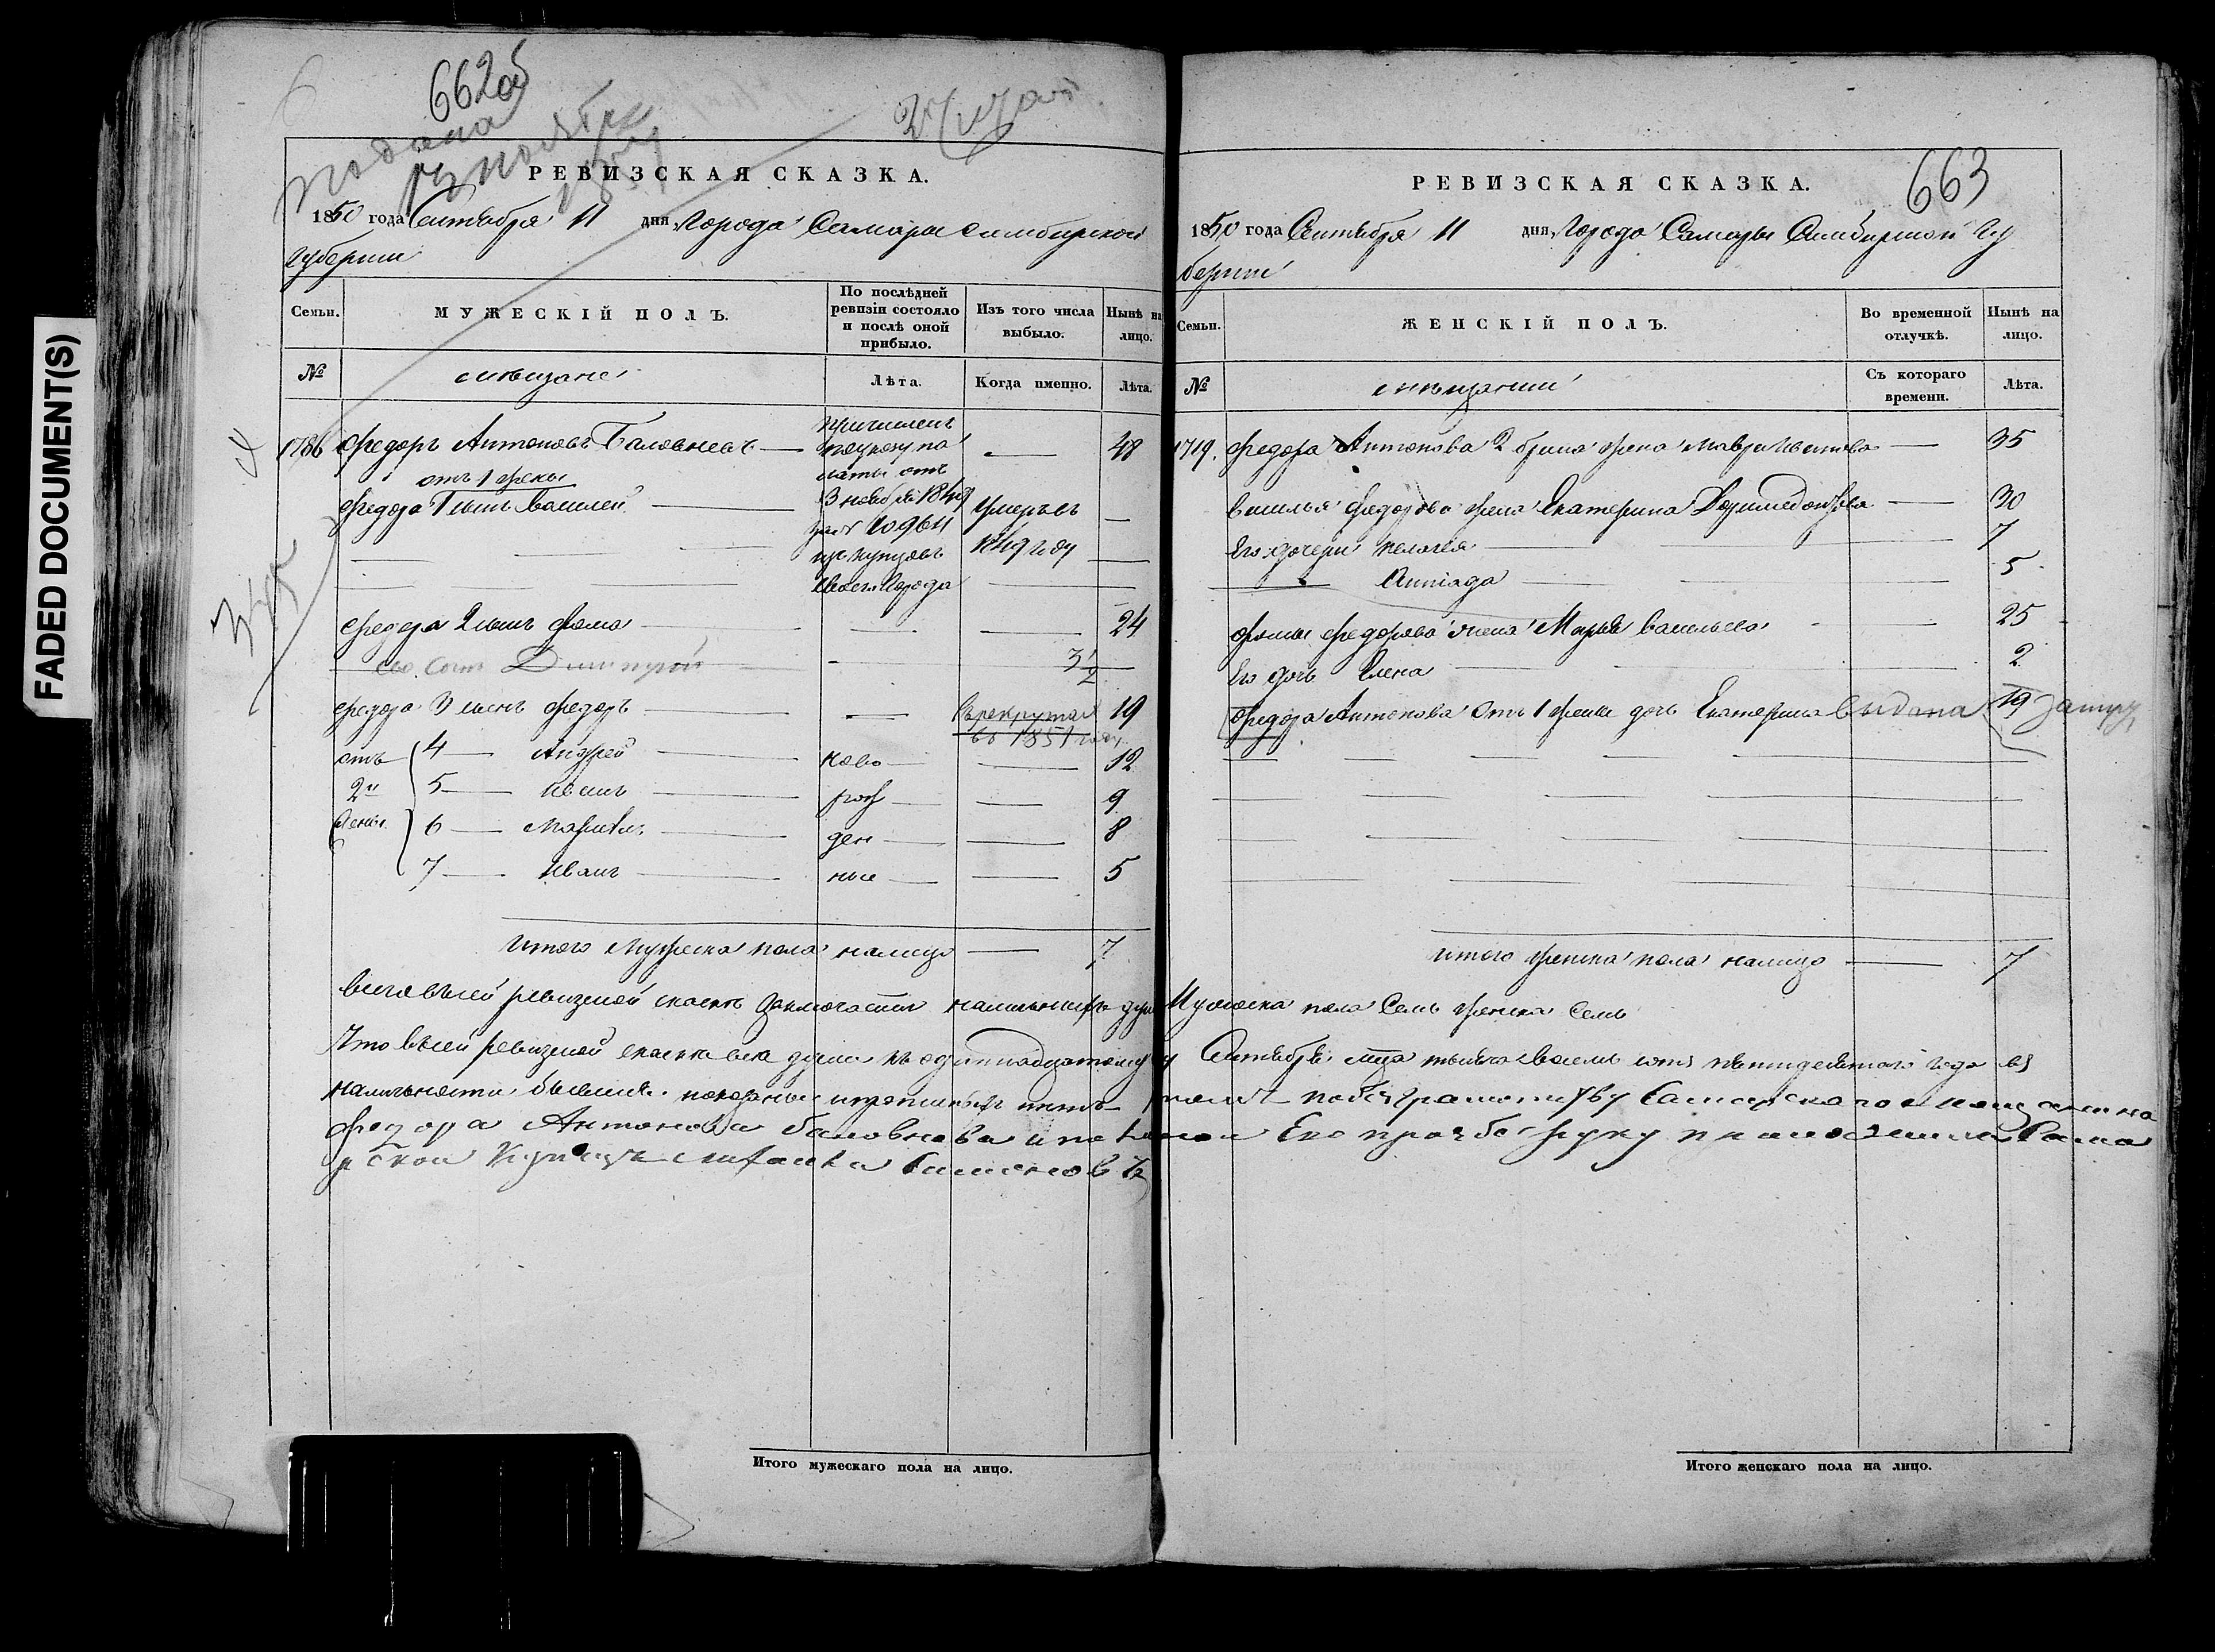 FADED DOCUMENT(S)
662об
подана
13 ноября
РЕВИЗСКАЯ СКАЗКА.
1850 года Сентября 11 дня Города Самары Симбирской
Губернии
Семьи.
МУЖЕСКІЙ ПОЛЪ.
По послѣдней
ревизіи состояло
и послѣ оной
прибыло.
Изъ того числа
выбыло.
Нынѣ на
лицо.
№
мещане
Лѣта.
Когда именно.
Лѣта.
1786 Федоръ Антоновъ 48
причислен
по указу па
латы от
3 ноября 1849
за № 10964
из купцовъ
города
от 1 жены
Федора 1 сынъ Василей
умеръ въ
1849 году
Федора 2 сынъ Фома — — 24
его сын Дмитрой — 3 1/2
Федора 3 сынъ Федоръ — в рекрутах 19
в 1851 году
отъ 4 — Андрей — ново — — 12
2й 5 — Иванъ — рож — — 9
жены 6 — — ден — — 8
7 — Иванъ — ные — — 5
Итого мужеска пола налицо — 7
663
РЕВИЗСКАЯ СКАЗКА.
1850 года Сентября 11 дня Города Самары Симбирской Гу
бернии
Семьи.
ЖЕНСКІЙ ПОЛЪ.
Во временной
отлучкѣ.
Нынѣ на
лицо.
№
мещанки
Съ котораго
времени.
Лѣта.
1719. Федора Антонова 2 брака жена Мавра — 35
Василья Федорова жена Екатерина — 30
Его дочери Пелагея — 7
5
Фомы Федорова жена Марья Васильева 25
Его дочь Елена 2
Федора Антонова от 1 жены дочь Екатерина выдана 19 замуж
Итого женска пола налицо — 7
Всего в сей ревизской сказке заключается наличных душ Мужеска пола Семь женска Семь
Что в сей ревизской сказке все души к одиннадцатому Сентября мца тысяча восемь сот пятидесятого года в
наличности бывшие показаны и прописных нет
Федора Антонова Его прозбе руку приложил Сама
рской Купец
Итого мужескаго пола на лицо.
Итого женскаго пола на лицо.